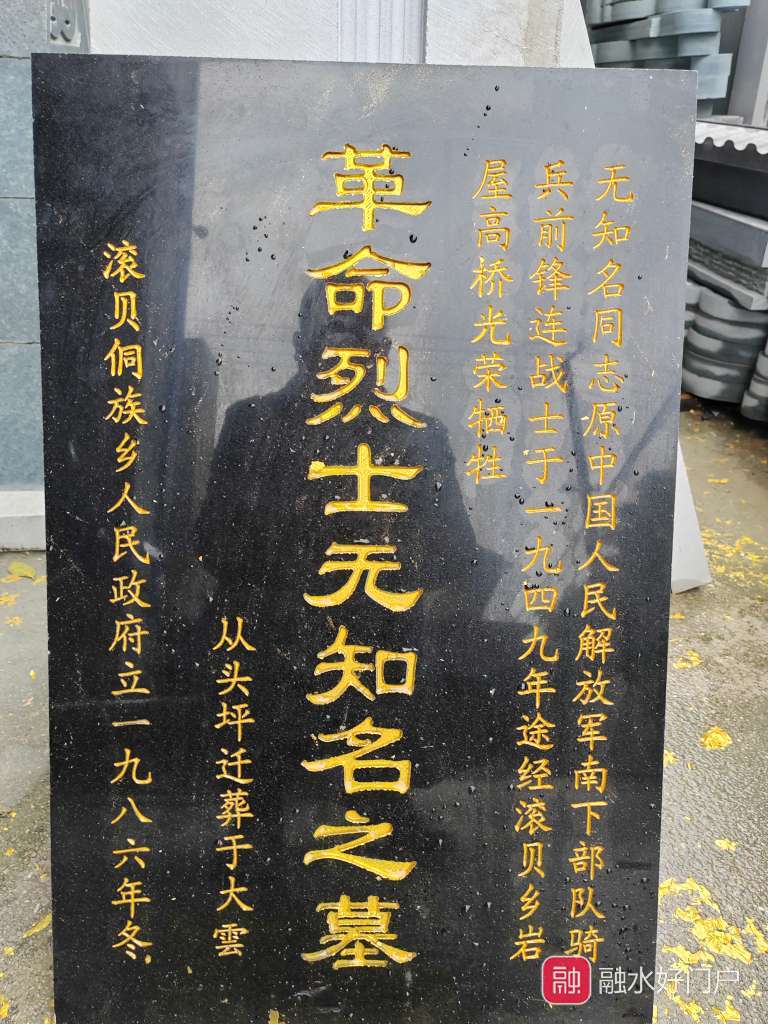 无知名同志原中国人民解放军南下部队骑
兵前锋连战士于一九四九年途经滚贝乡岩
屋高桥光荣牺牲
革命烈士无知名之墓
从头坪迁葬于大雲
滚贝侗族乡人民政府立一九八六年冬.
融 融水好门户